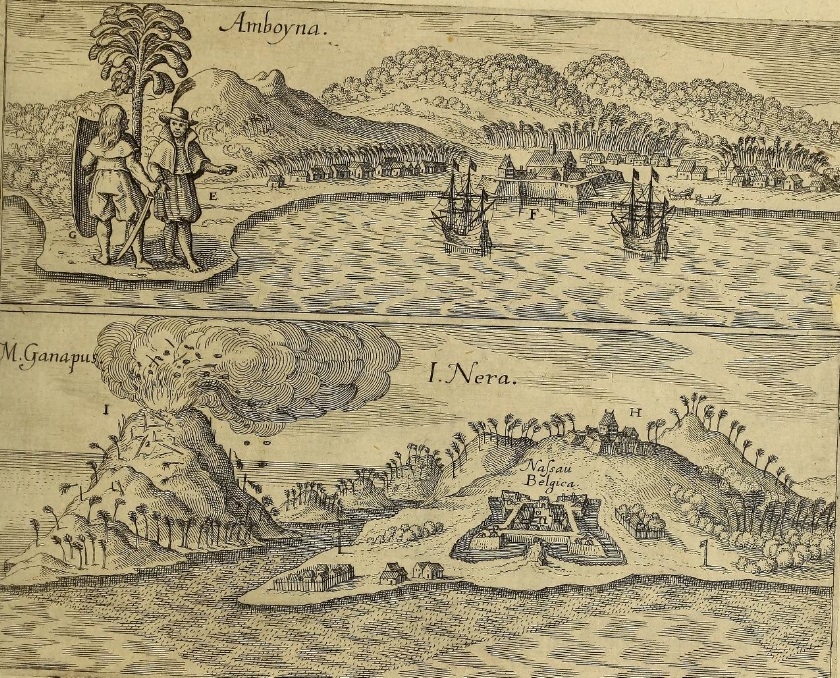 Amboyna.
E
G
F
M. Ganapus
I. Nera.
I
H
Naſsau
Belgica.